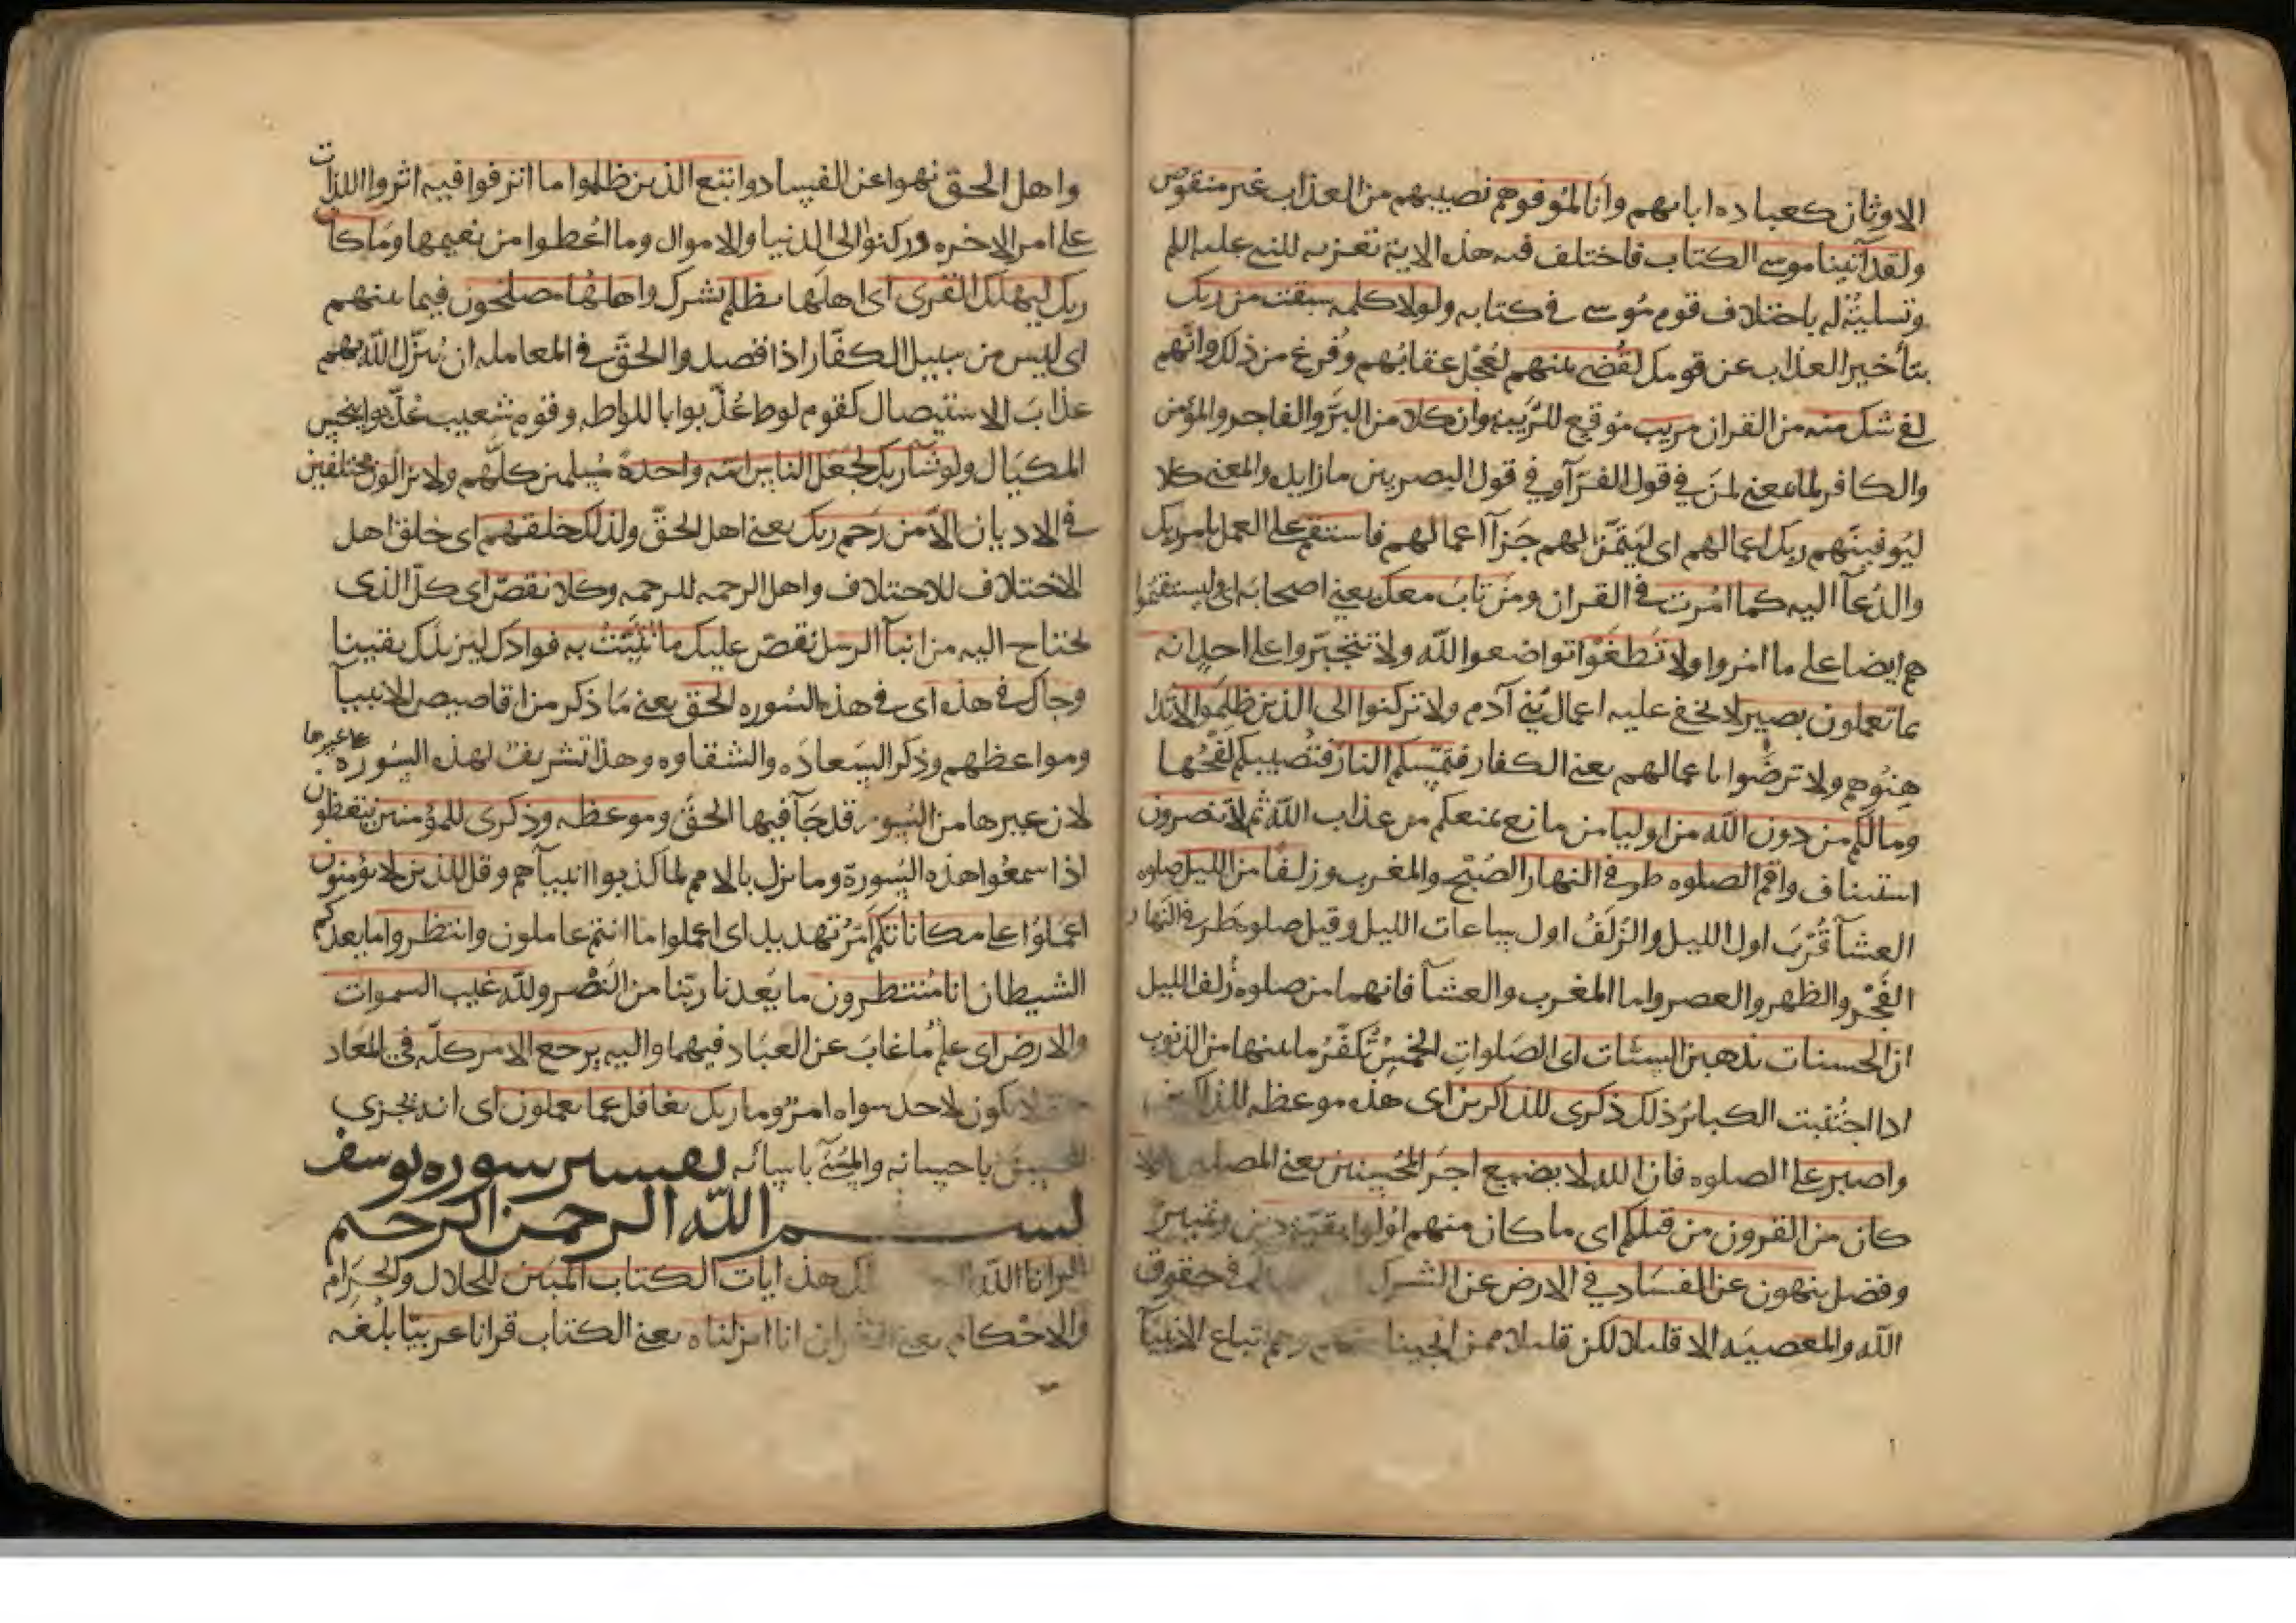 الاوثان كعباده ابايهم وانا لموفوهم نصيبهم من العذاب غير منقوص
ولقد آتينا موسى الكتاب فاختلف فيه هذه الاية تعزيه للنبي عليه السلم
وتسلية له باختلاف قوم موسى في كتابه ولولا كلمه سبقت من ربك
بتأخير العذاب عن قومك لقضي بينهم لعجل عقابهم وفرغ من ذلك وانهم
لفي شك منه من القران مريب موقع للريبة وان كلا من البر والفاجر والمؤمن
والكافر لما معنى لمن في قول الفرآ وفي قول البصريين ما زايده والمعنى كلا
ليوفينهم ربك اعمالهم اي ليتمن لهم جزآ اعمالهم فاستقم على العمل بامر ربك
والدعآ اليه كما امرت في القران ومن تاب معك يعني اصحابه اي وليستقيموا
هم ايضا على ما امروا ولا تطغوا تواضعوا لله ولا تتجبروا على احد انه
بما تعملون بصير لا تخفى عليه اعمال بني آدم ولا تركنوا الى الذين ظلموا لا تدا
هنوهم ولا ترضوا باعمالهم يعني الكفار فتمسكم النار فتصيبكم لفحها
ومالكم من دون الله من اوليا من مانع يمنعكم من عذاب الله ثم لا تنصرون
استيناف واقم الصلوه طرفي النهار الصبح والمغرب وزلفا من الليل صلوه
العشآ قرب اول الليل والزلف اول ساعات الليل وقيل صلوه طرفي النهار
الفجر والظهر والعصر واما المغرب والعشآ فانهما من صلوه زلف الليل
ان الحسنات يذهبن السيئات اي الصلوات الخمس تكفر ما بينها من الذنوب
اذا اجتنبت الكبائر ذلك ذكرى للذاكرين اي هذه موعظه للذاكرين
واصبر على الصلوه فان الله لا يضيع اجر المحسنين يعني المصلين فلولا
كان من القرون من قبلكم اي ما كان منهم اولوا بقية دين وتمييز
وفضل ينهون عن الفساد في الارض عن الشرك في حقوق
الله والمعصيه الا قليلا لكن قليلا ممن انجينا وهم اتباع الانبيآ
واهل الحق نهوا عن الفساد واتبع الذين ظلموا ما اترفوا فيه اثروا اللذات
على امر الاخره وركنوا الى الدنيا والاموال وما اعطوا من نعيمها وما كان
ربك ليهلك القرى اي اهلها بظلم بشرك واهلها مصلحون فيما بينهم
اي ليس من سبيل الكفار اذا قصدوا الحق في المعامله ان ينزل الله بهم
عذاب الاستيصال كقوم لوط عذبوا باللواطه وقوم شعيب عذبوا ببخس
المكيال ولو شآ ربك لجعل الناس امة واحدة مسلمين كلهم ولا يزالون مختلفين
في الاديان الا من رحم ربك يعني اهل الحق ولذلك خلقهم اي خلق اهل
الاختلاف للاختلاف واهل الرحمه للرحمه وكلا نقص اي كل الذي
تحتاج اليه من انبآ الرسل نقص عليك ما نثبت به فوادك ليزيدك يقينا
وجاك في هذه اي في هذه السوره الحق يعني ما ذكر من اقاصيص الانبيآ
ومواعظهم وذكر السعاده والشقاوه وهذا تشريف لهذه السوره على غيرها
لان غيرها من السور قد جآ فيها الحق وموعظه وذكرى للمؤمنين يتعظون
اذا سمعوا هذه السورة وما نزل بالامم لما كذبوا انبيآهم وقل للذين لا يؤمنون
اعملوا على مكاناتكم امر تهديد اي اعملوا ما انتم عاملون وانتظروا ما يعدكم
الشيطان انا منتظرون ما يعدنا ربنا من النصر ولله غيب السموات
والارض اي علم ما غاب عن العباد فيهما واليه يرجع الامر كله في المعاد
يكون لاحد سواه امر وما ربك بغافل عما يعملون اي انه يجزي
المحسن باحسانه والمسئ باسائه تفسير سوره يوسف
بسم الله الرحمن الرحيم
الر انا الله تلك هذه ايات الكتاب المبين للحلال والحرام
والاحكام يعني القران انا انزلناه يعني الكتاب قرانا عربيا بلغه